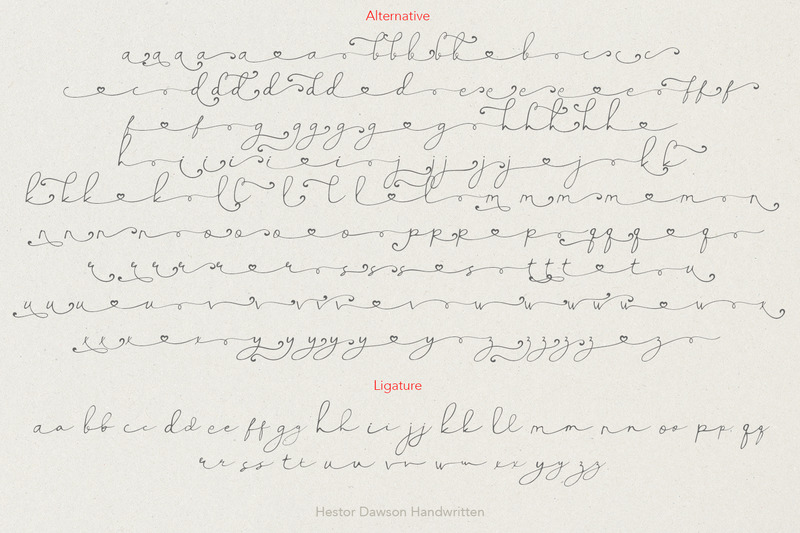 Alternative
a a a a a a a b b b b b b b c c c c
c c c d d d d d d d e e e e e e f f f
f f f g g g g g g g h h h h h
h i i i i i i j j j j j j j k k
k k k k k l l l l l l l m m m m m m n
n n n n n o o o o o o p p p p p q q q q q
r r r r r r r s s s s s s t t t t t u
u u u u u v v v v v v v w w w w w w w x
x x x x x y y y y y y y z z z z z z z
Ligature
aa bb cc dd ee ff gg hh ii jj kk ll mm nn oo pp qq
rr ss tt uu vv ww xx yy zz
Hestor Dawson Handwritten